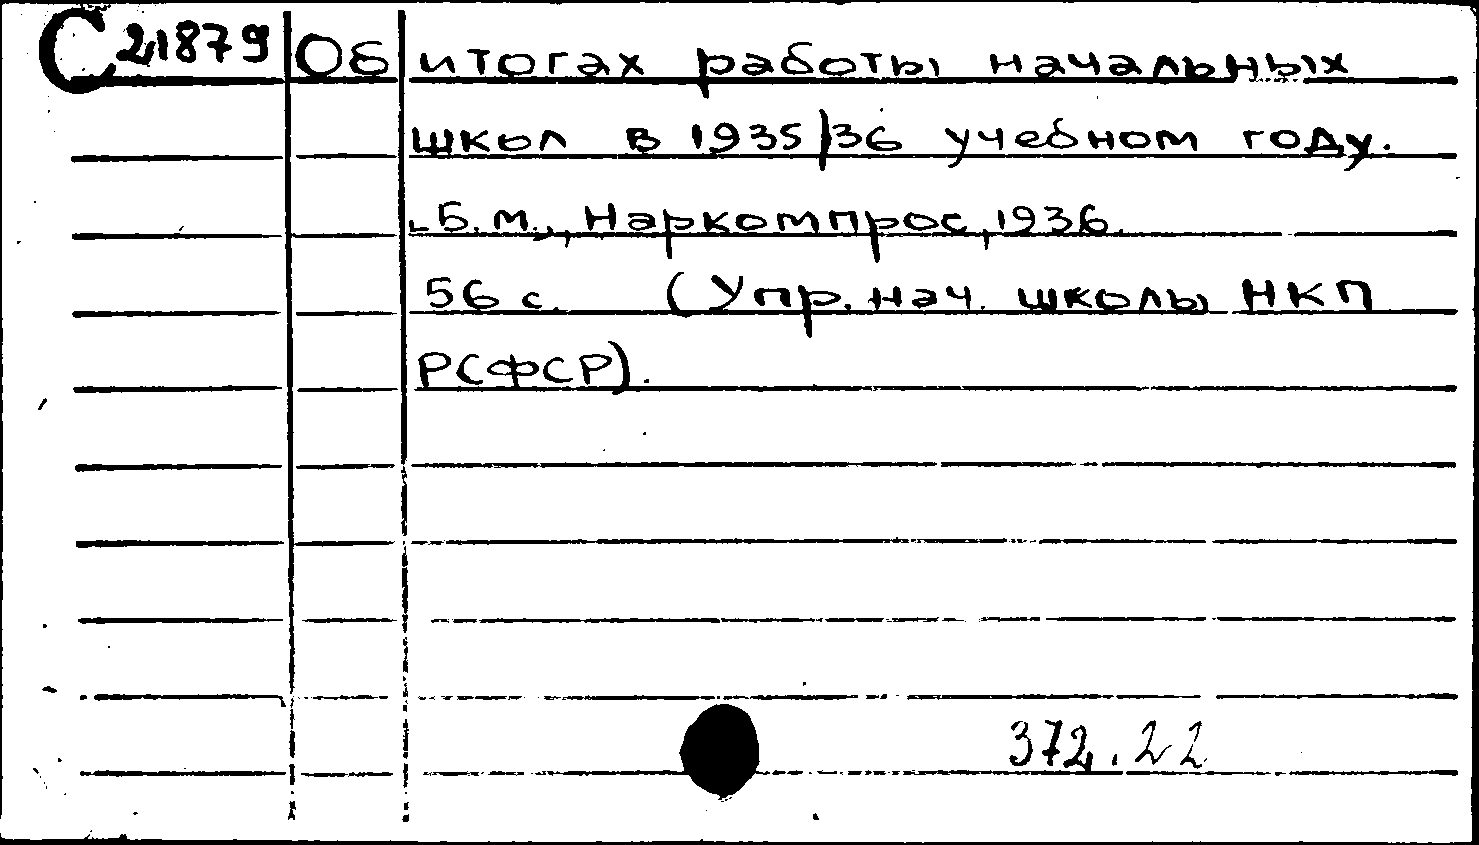 С 21879 Об итогах работы начальных
школ в 1935/36 учебном году.
Б. м., Наркомпрос, 1936.
56 с. (Упр. нач. школы НКП
РСФСР).
372.22